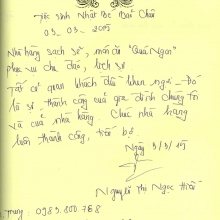 Tiệc sinh Nhật Bé Bảo Châu
03. 03. 2015
Nhà hàng sạch sẽ, món ăn "Quá Ngon"
phục vụ chu đáo, lịch sự
Tất cả quan khách đều khen ngợi - Đó
là sự thành công của gia đình chúng tôi
và của nhà hàng. Chúc nhà hàng
luôn thành công, tiến bộ.
Ngày 3/3/15
Nguyễn Thị Ngọc
0983.800.768